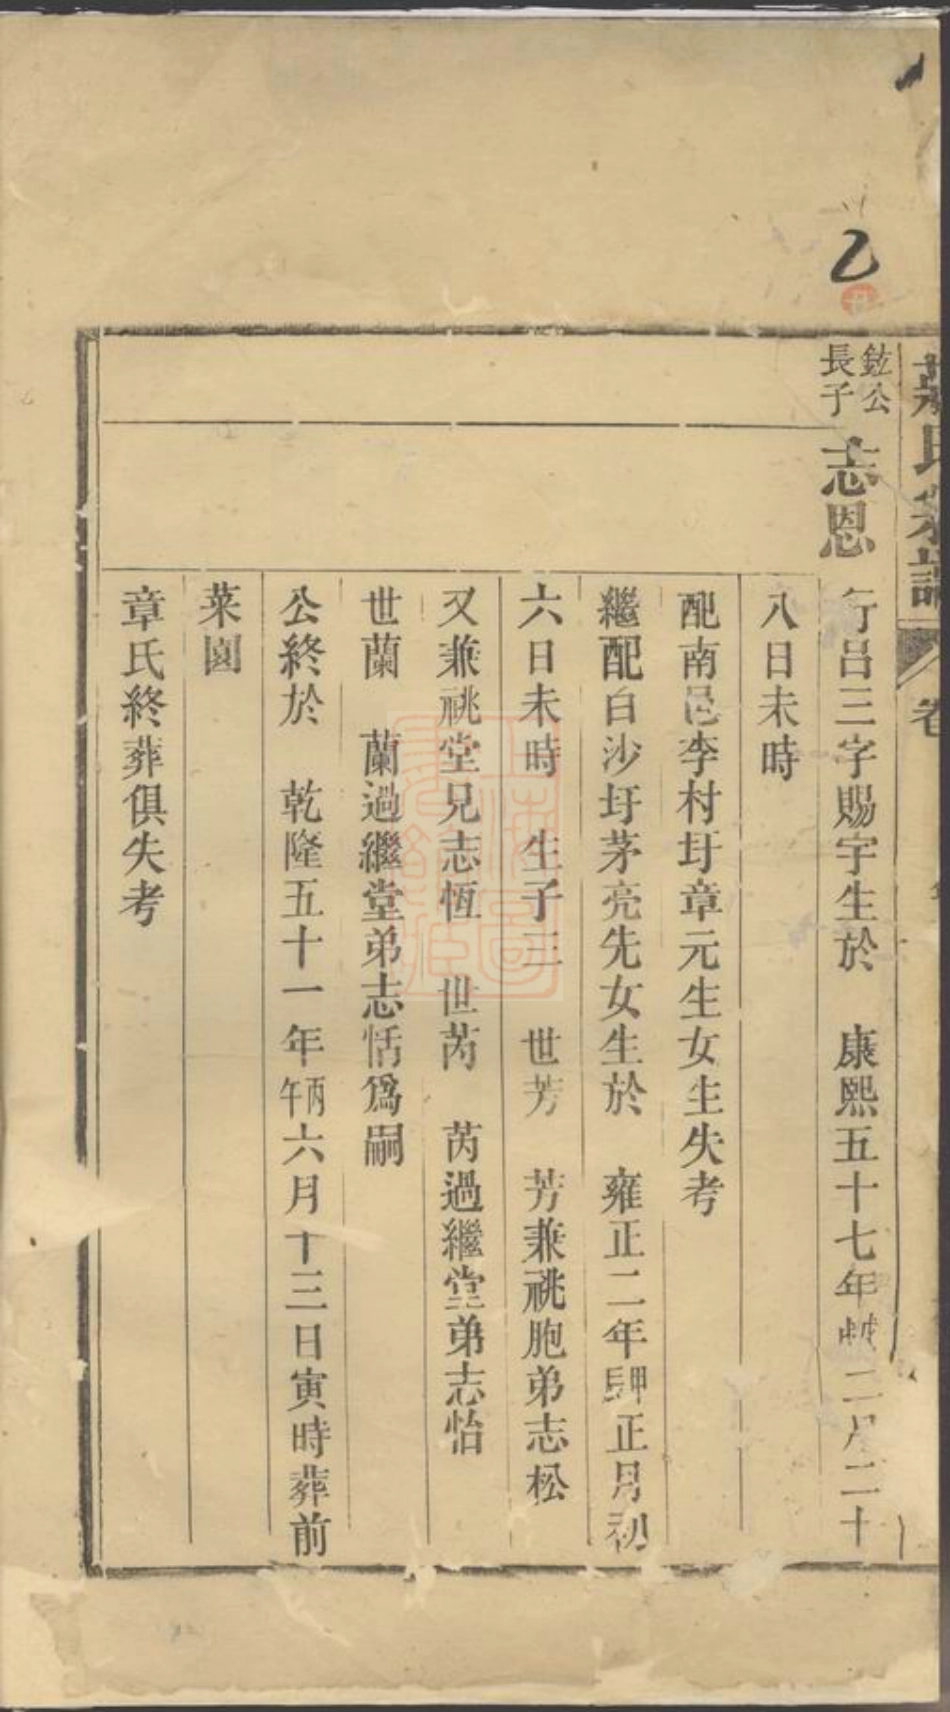 乙
氏宗譜 卷
鈜公長子 志恩 行呂三字賜宇生於 康熙五十七年戊戌二月二十
八日未時
配南邑李村圩章元生女生失考
繼配白沙圩茅亮先女生於 雍正二年甲辰正月初
六日未時 生子三 世芳 芳兼祧胞弟志松
又兼祧堂兄志恆 世芮 芮過繼堂弟志怡
世蘭 蘭過繼堂弟志恬爲嗣
公終於 乾隆五十一年丙午六月十三日寅時葬前
菜園
章氏終葬俱失考